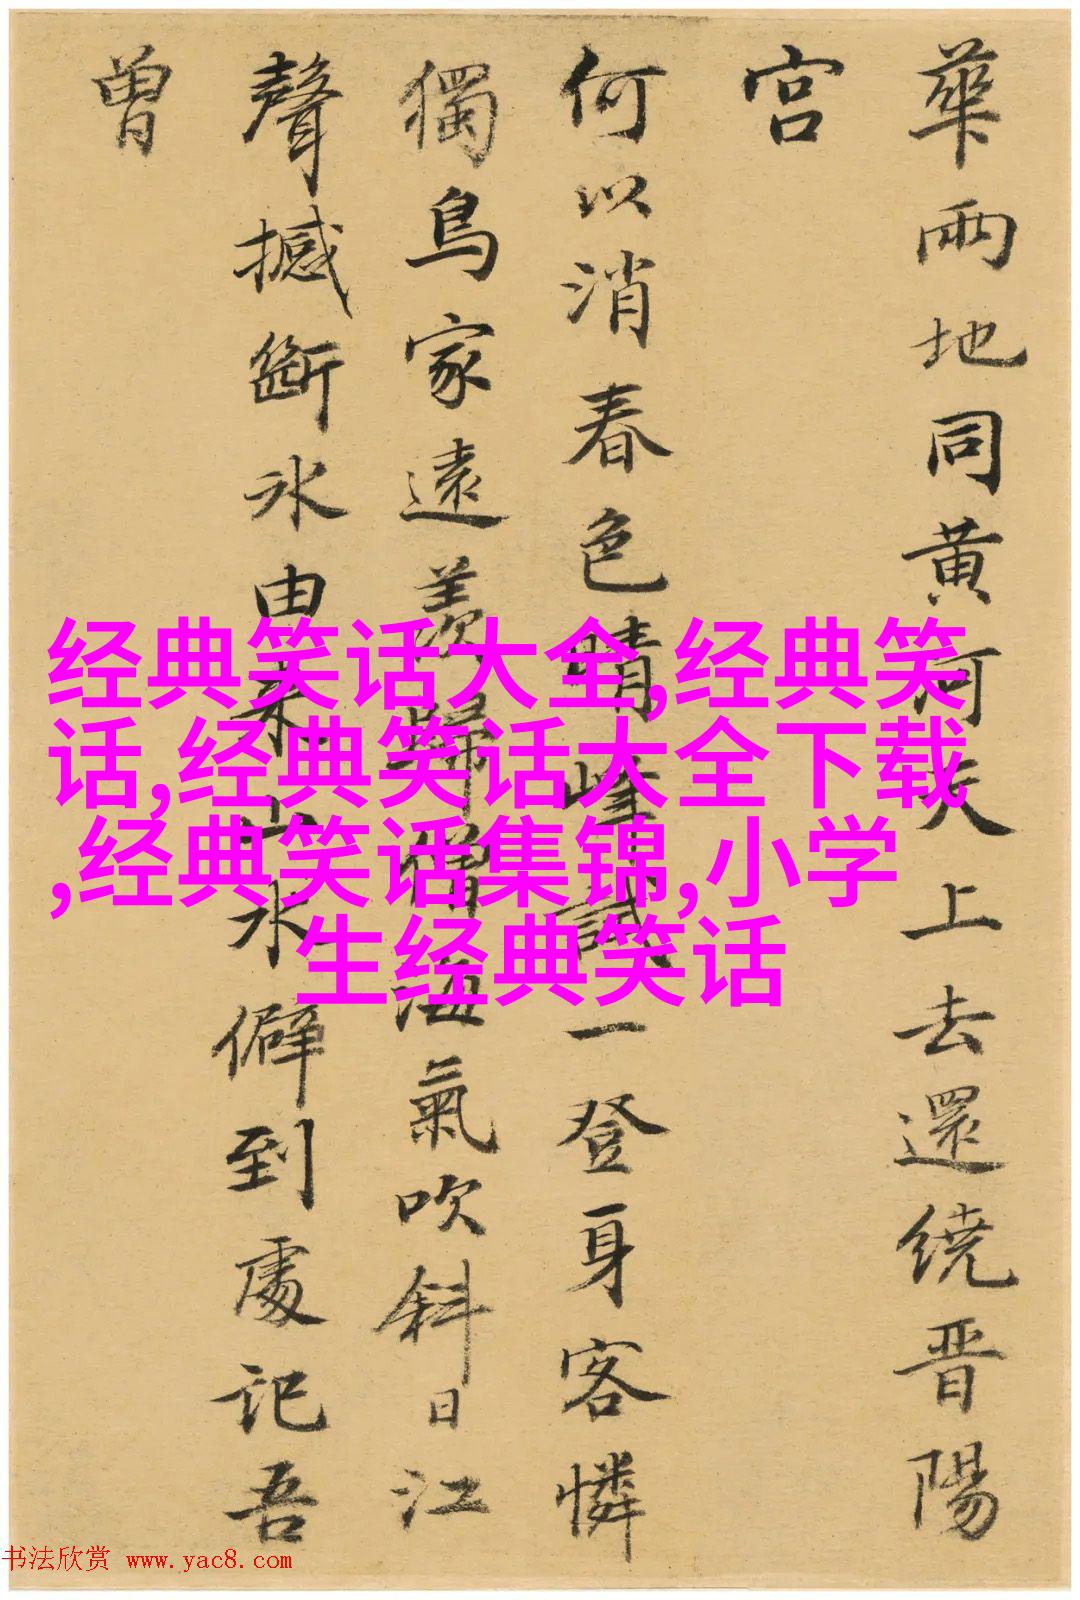 華兩地同黄河天上去還繞晋陽
宫
何以消春色晴峰試一登身客憐
獨鳥家遠羨歸僧海氣吹斜日江
聲撼斷冰由来山水僻到處記吾
曾
经典笑话大全,经典笑
话,经典笑话大全下载
,经典笑话集锦,小学
生经典笑话
书法欣赏 www.yac8.com